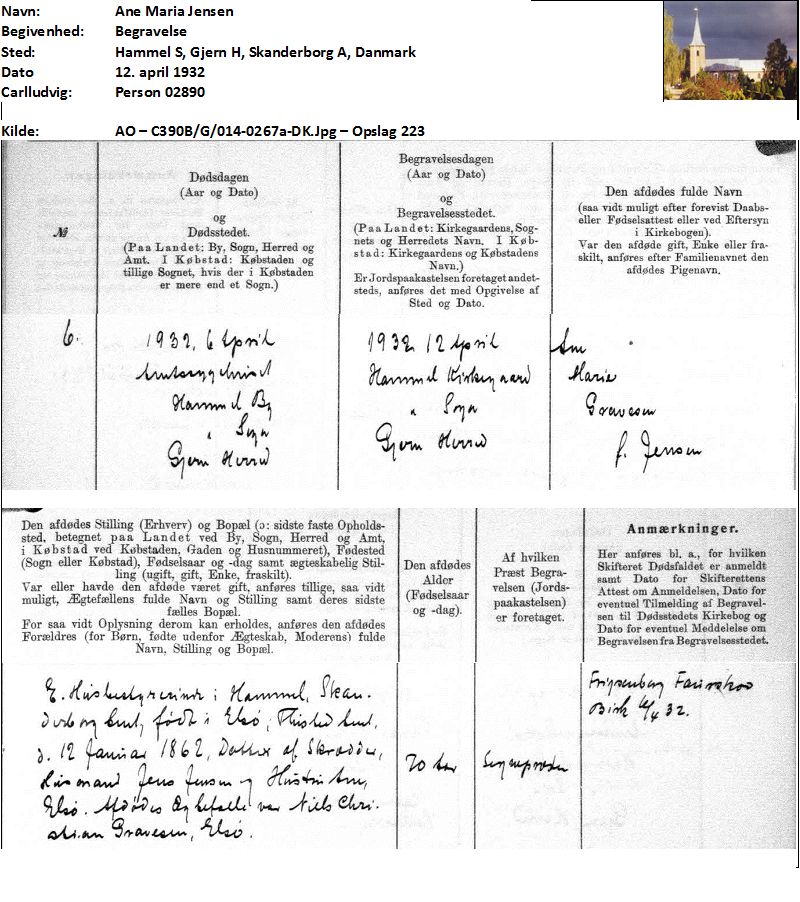 Navn: Ane Maria Jensen
Begivenhed: Begravelse
Sted: Hammel S, Gjern H, Skanderborg A, Danmark
Dato 12. april 1932
Carlludvig: Person 02890
Kilde: AO – C390B/G/014-0267a-DK.Jpg – Opslag 223
№
Dødsdagen
(Aar og Dato)
og
Dødsstedet.
(Paa Landet: By, Sogn, Herred og
Amt. I Købstad: Købstaden og
tillige Sognet, hvis der i Købstaden
er mere end et Sogn.)
Begravelsesdagen
(Aar og Dato)
og
Begravelsesstedet.
(Paa Landet: Kirkegaardens, Sog-
nets og Herredets Navn. I Køb-
stad: Kirkegaardens og Købstadens
Navn.)
Er Jordspaakastelsen foretaget andet-
steds, anføres det med Opgivelse af
Sted og Dato.
Den afdødes fulde Navn
(saa vidt muligt efter forevist Daabs-
eller Fødselsattest eller ved Eftersyn
i Kirkebogen).
Var den afdøde gift, Enke eller fra-
skilt, anføres efter Familienavnet den
afdødes Pigenavn.
6.
1932, 6 April
Amtssygehuset
Hammel By
" Sogn
Gjern Herred
1932 12 April
Hammel Kirkegaard
" Sogn
Gjern Herred
Ane
Marie
Gravesen
f. Jensen
Den afdødes Stilling (Erhverv) og Bopæl (ɔ: sidste faste Opholds-
sted, betegnet paa Landet ved By, Sogn, Herred og Amt,
i Købstad ved Købstaden, Gaden og Husnummeret), Fødested
(Sogn eller Købstad), Fødselsaar og -dag samt ægteskabelig Stil-
ling (ugift, gift, Enke, fraskilt).
Var eller havde den afdøde været gift, anføres tillige, saa vidt
muligt, Ægtefællens fulde Navn og Stilling samt deres sidste
fælles Bopæl.
For saa vidt Oplysning derom kan erholdes, anføres den afdødes
Forældres (for Børn, fødte udenfor Ægteskab, Moderens) fulde
Navn, Stilling og Bopæl.
Den afdødes
Alder
(Fødselsaar
og -dag).
Af hvilken
Præst Begra-
velsen (Jords-
paakastelsen)
er foretaget.
Anmærkninger.
Her anføres bl. a., for hvilken
Skifteret Dødsfaldet er anmeldt
samt Dato for Skifterettens
Attest om Anmeldelsen, Dato for
eventuel Tilmelding af Begravel-
sen til Dødsstedets Kirkebog og
Dato for eventuel Meddelelse om
Begravelsen fra Begravelsesstedet.
E. Husbestyrerinde i Hammel, Skan-
derborg Amt, født i Elsø, Thisted Amt,
d. 12 Januar 1862, Datter af Skrædder,
Husmand Jens Jensen og Hustru Ane,
Elsø. Afdødes Ægtefælle var Niels Chri-
stian Gravesen, Elsø.
70 Aar
Sognepræsten
Frijsenborg Faurskov
Birk 6/4 32.